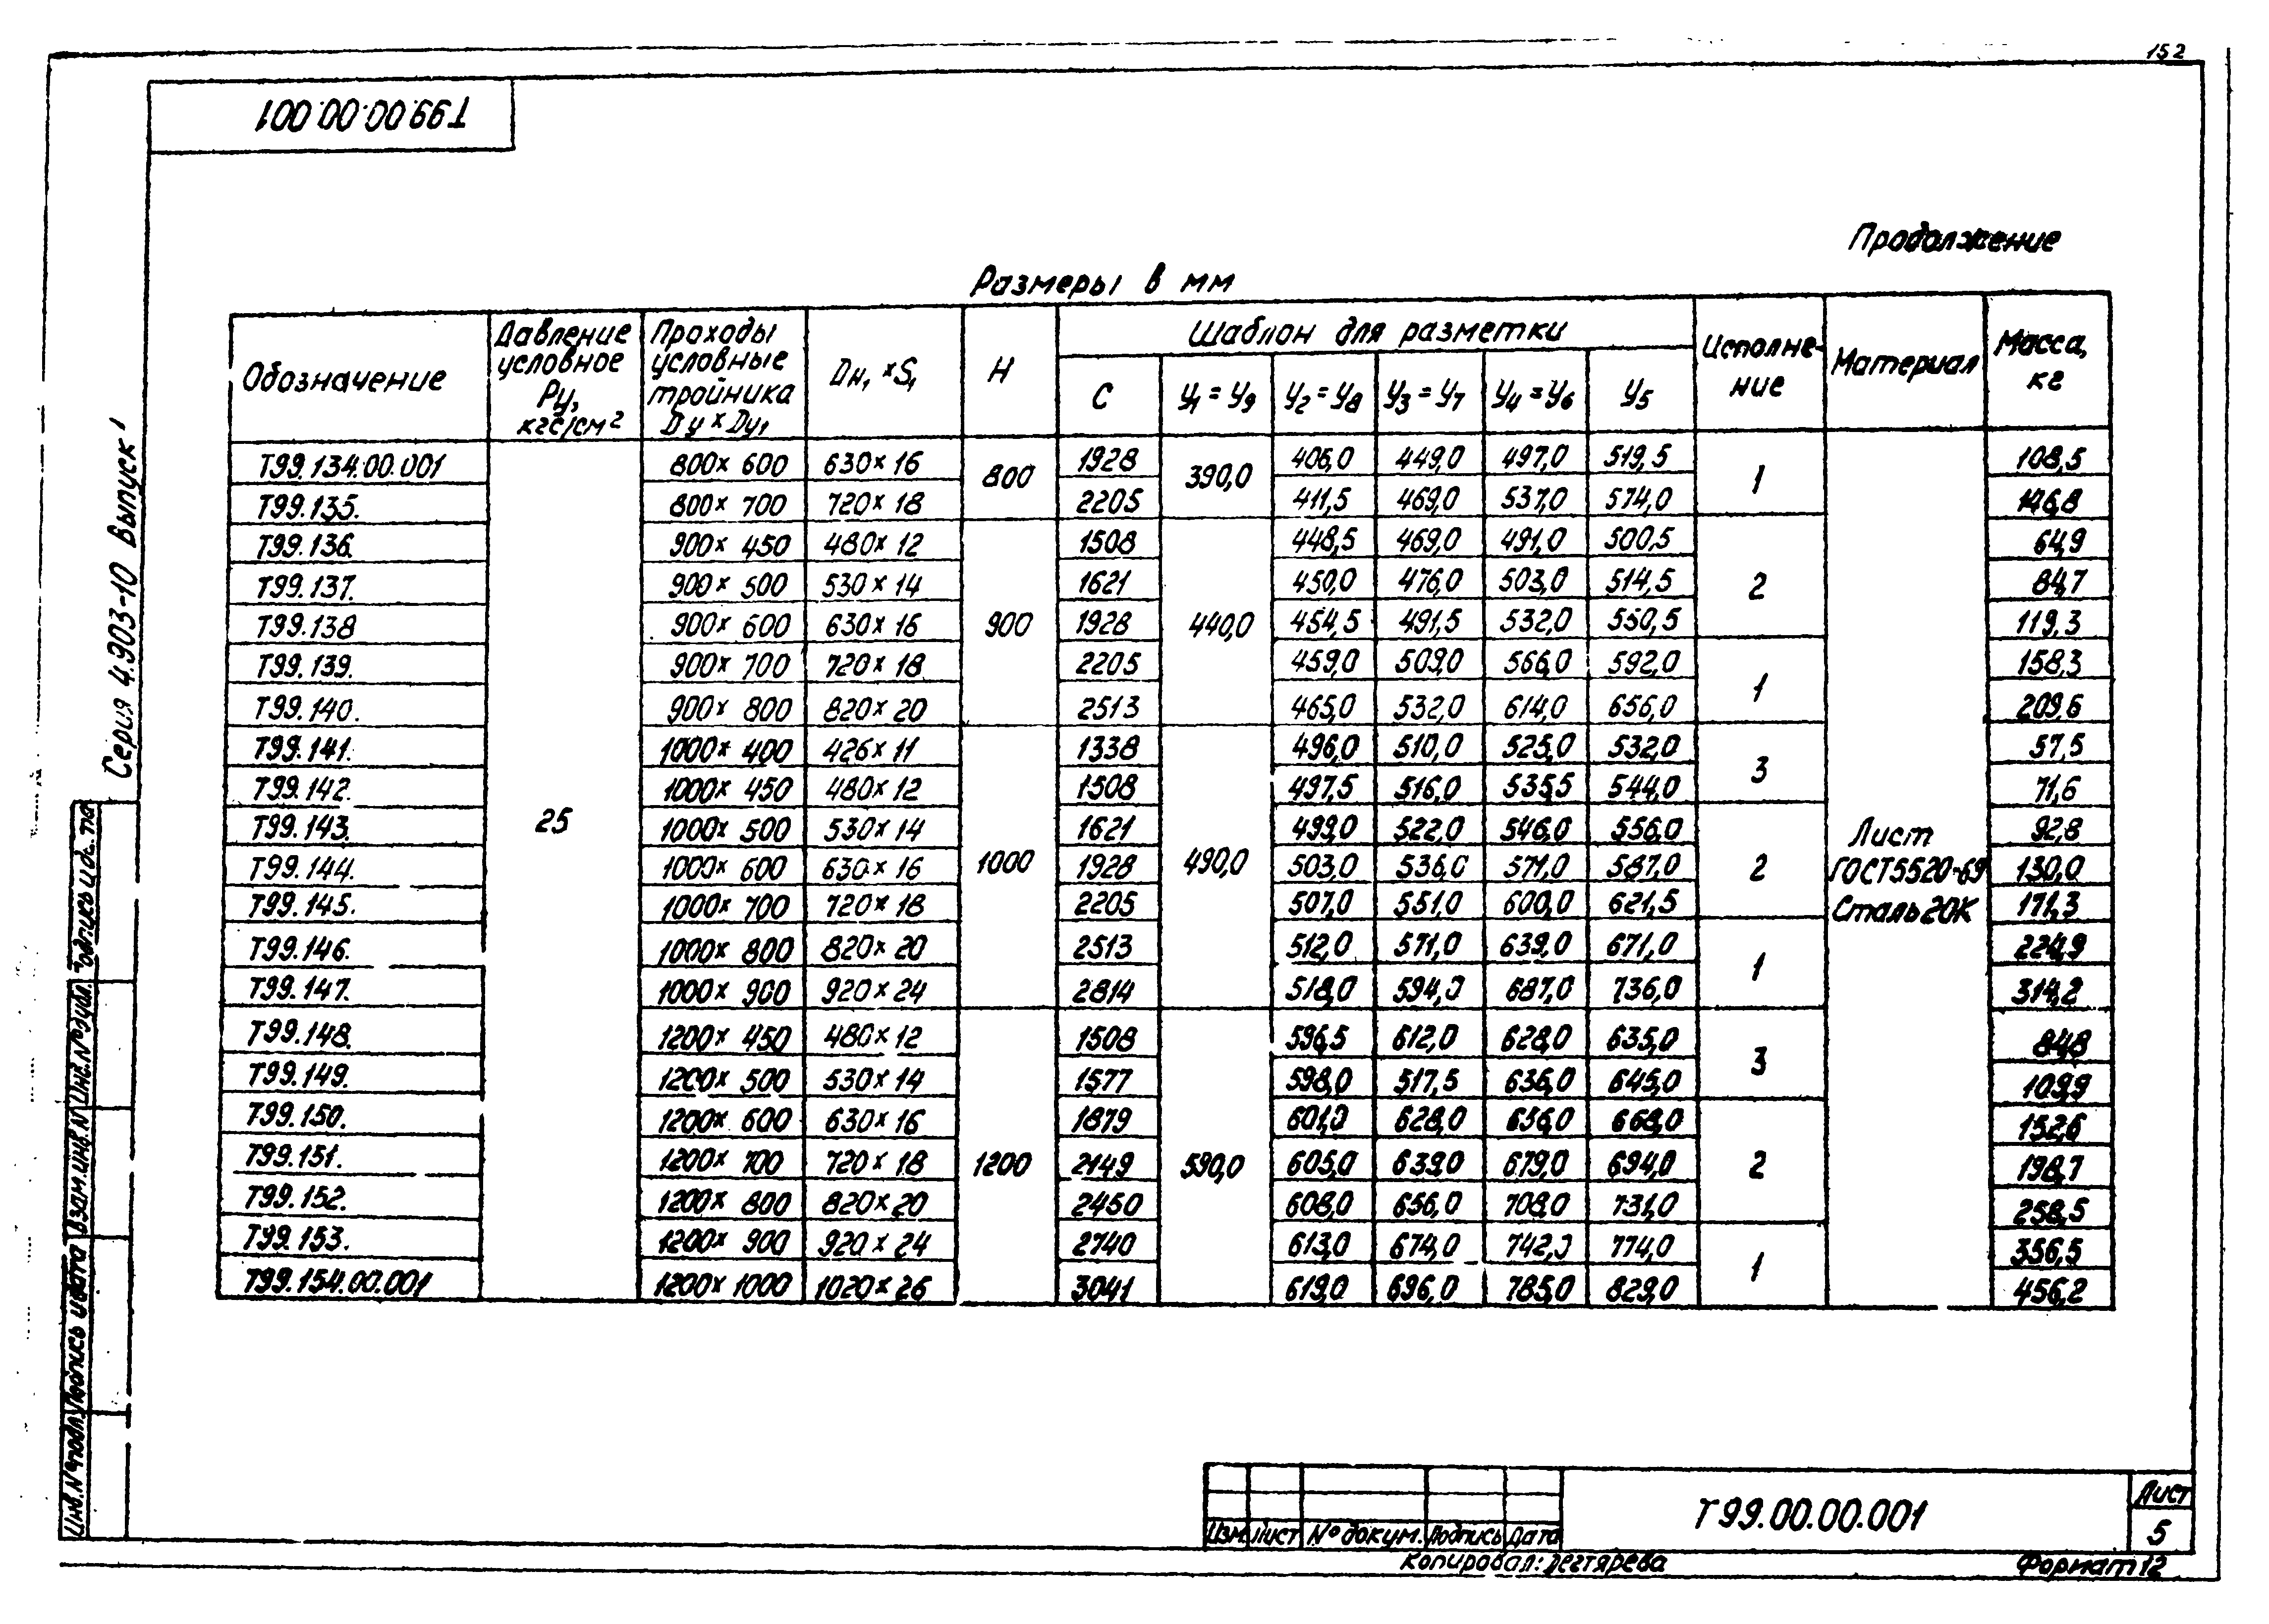 152
Т99.00.00.001
Серия 4.903-10 Выпуск 1
Продолжение
Размеры в мм
Обозначение | Давление условное Ру, кгс/см² | Проходы условные тройника Dу × Dу₁ | Dн₁ × S₁ | Н | Шаблон для разметки | Исполнение | Материал | Масса, кг
С | У₁ = У₉ | У₂ = У₈ | У₃ = У₇ | У₄ = У₆ | У₅
Т99.134.00.001 | 25 | 800× 600 | 630× 16 | 800 | 1928 | 390,0 | 406,0 | 449,0 | 497,0 | 519,5 | 1 | Лист ГОСТ5520-69 Сталь 20К | 108,5
Т99.135. | 800× 700 | 720× 18 | 2205 | 411,5 | 469,0 | 537,0 | 574,0 | 146,8
Т99.136. | 900× 450 | 480× 12 | 900 | 1508 | 440,0 | 448,5 | 469,0 | 491,0 | 500,5 | 2 | 64,9
Т99.137. | 900× 500 | 530× 14 | 1621 | 450,0 | 476,0 | 503,0 | 514,5 | 84,7
Т99.138 | 900× 600 | 630× 16 | 1928 | 454,5 | 491,5 | 532,0 | 550,5 | 119,3
Т99.139. | 900× 700 | 720× 18 | 2205 | 459,0 | 509,0 | 566,0 | 592,0 | 1 | 158,3
Т99.140. | 900× 800 | 820× 20 | 2513 | 465,0 | 532,0 | 614,0 | 656,0 | 209,6
Т99.141. | 1000× 400 | 426× 11 | 1000 | 1338 | 490,0 | 496,0 | 510,0 | 525,0 | 532,0 | 3 | 57,5
Т99.142. | 1000× 450 | 480× 12 | 1508 | 497,5 | 516,0 | 535,5 | 544,0 | 71,6
Т99.143. | 1000× 500 | 530× 14 | 1621 | 499,0 | 522,0 | 546,0 | 556,0 | 2 | 92,8
Т99.144. | 1000× 600 | 630× 16 | 1928 | 503,0 | 536,0 | 571,0 | 587,0 | 130,0
Т99.145. | 1000× 700 | 720× 18 | 2205 | 507,0 | 551,0 | 600,0 | 621,5 | 171,3
Т99.146. | 1000× 800 | 820× 20 | 2513 | 512,0 | 571,0 | 639,0 | 671,0 | 1 | 224,9
Т99.147. | 1000× 900 | 920× 24 | 2814 | 518,0 | 594,0 | 687,0 | 736,0 | 314,2
Т99.148. | 1200× 450 | 480× 12 | 1200 | 1508 | 590,0 | 596,5 | 612,0 | 628,0 | 635,0 | 3 | 84,8
Т99.149. | 1200× 500 | 530× 14 | 1577 | 598,0 | 517,5 | 636,0 | 645,0 | 109,9
Т99.150. | 1200× 600 | 630× 16 | 1879 | 601,0 | 628,0 | 656,0 | 668,0 | 2 | 152,6
Т99.151. | 1200× 700 | 720× 18 | 2149 | 605,0 | 639,0 | 679,0 | 694,0 | 198,7
Т99.152. | 1200× 800 | 820× 20 | 2450 | 608,0 | 656,0 | 708,0 | 731,0 | 258,5
Т99.153. | 1200× 900 | 920× 24 | 2740 | 613,0 | 674,0 | 742,0 | 774,0 | 1 | 356,5
Т99.154.00.001 | 1200× 1000 | 1020× 26 | 3041 | 619,0 | 696,0 | 785,0 | 829,0 | 456,2
Инв.№подл.
Подпись и дата
Взам.инв.№
Инв.№дубл.
Изм. Лист №докум. Подпись Дата
Т99.00.00.001
Лист
5
Копировал: Дегтярева
Формат 12